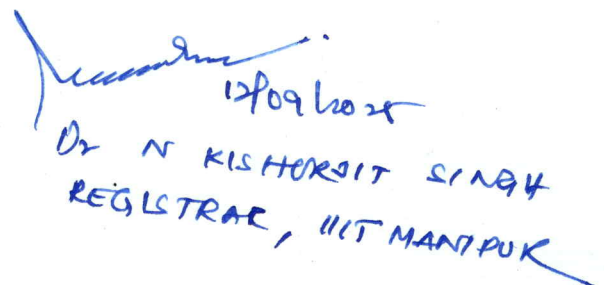 12/09/2025
Dr N KISHORJIT SINGH
REGISTRAR, IIIT MANIPUR